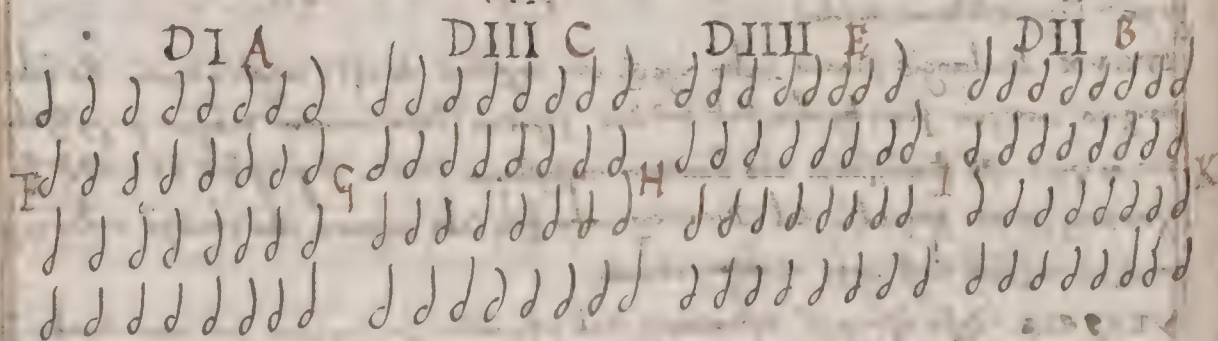 D I A D III C D IIII E D II B
d d d d d d d d d d d d d d d d d d d d d d d d d d d d d d d d
F d d d d d d d d G d d d d d d d d H d d d d d d d d I d d d d d d d d K
d d d d d d d d d d d d d d d d d d d d d d d d d d d d d d d d
d d d d d d d d d d d d d d d d d d d d d d d d d d d d d d d d